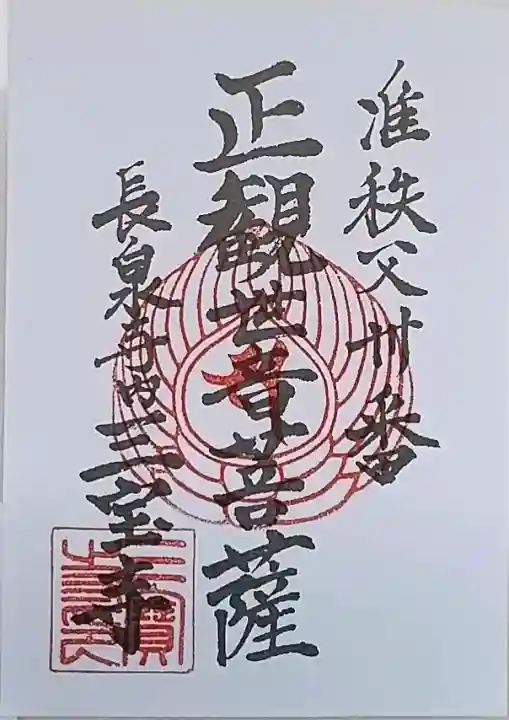 准秩父卅番
正観世音菩薩
長泉寺内三宝寺